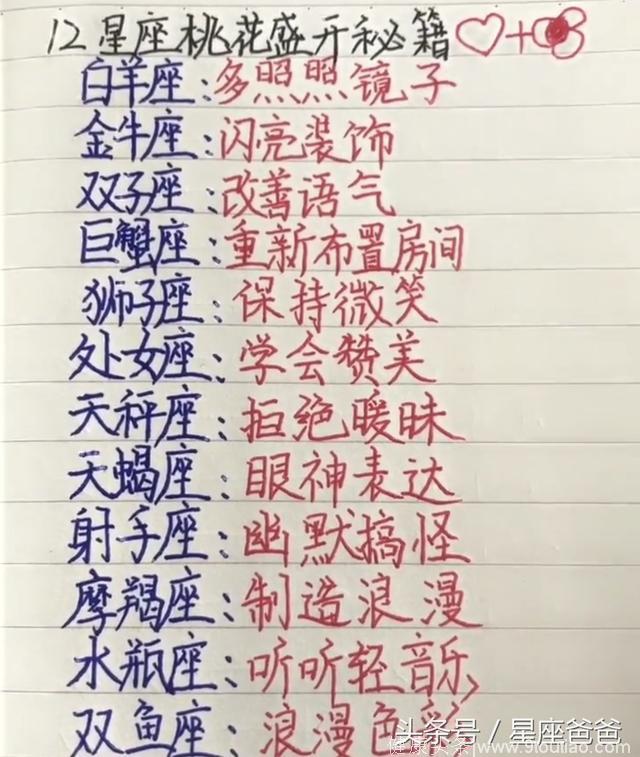 12星座桃花盛开秘籍
白羊座:多照照镜子
金牛座:闪亮装饰
双子座:改善语气
巨蟹座:重新布置房间
狮子座:保持微笑
处女座:学会赞美
天秤座:拒绝暧昧
天蝎座:眼神表达
射手座:幽默搞怪
摩羯座:制造浪漫
水瓶座:听听轻音乐
双鱼座:浪漫色彩
头条号/星座爸爸
健康头条 www.9touliao.com